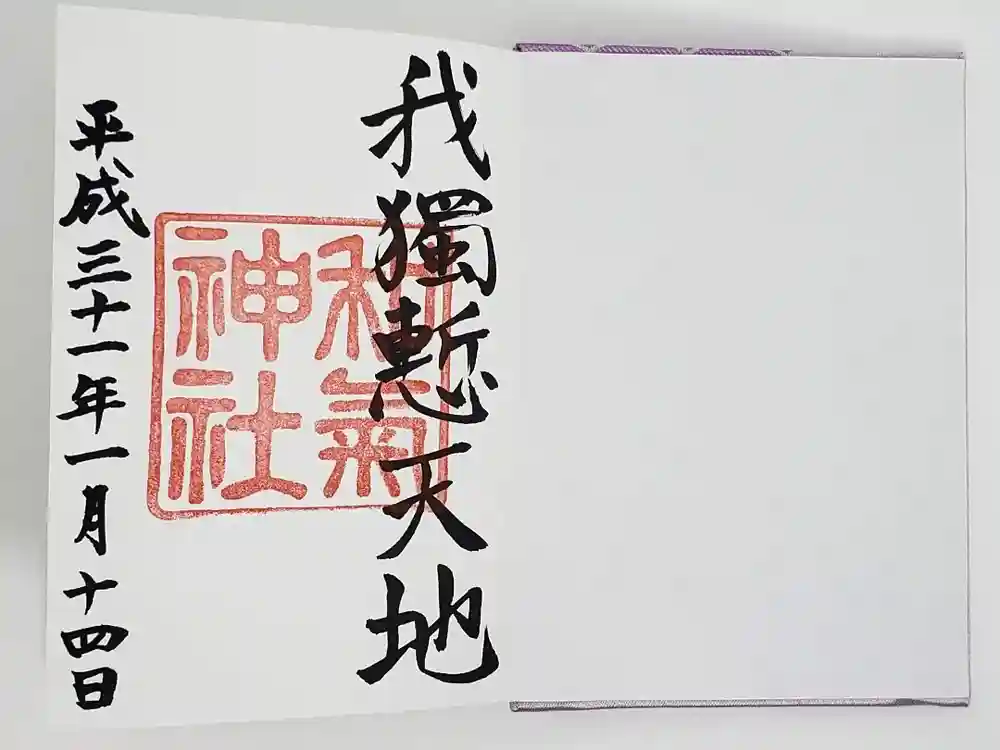 我獨慙天地
和氣
神社
平成三十一年一月十四日